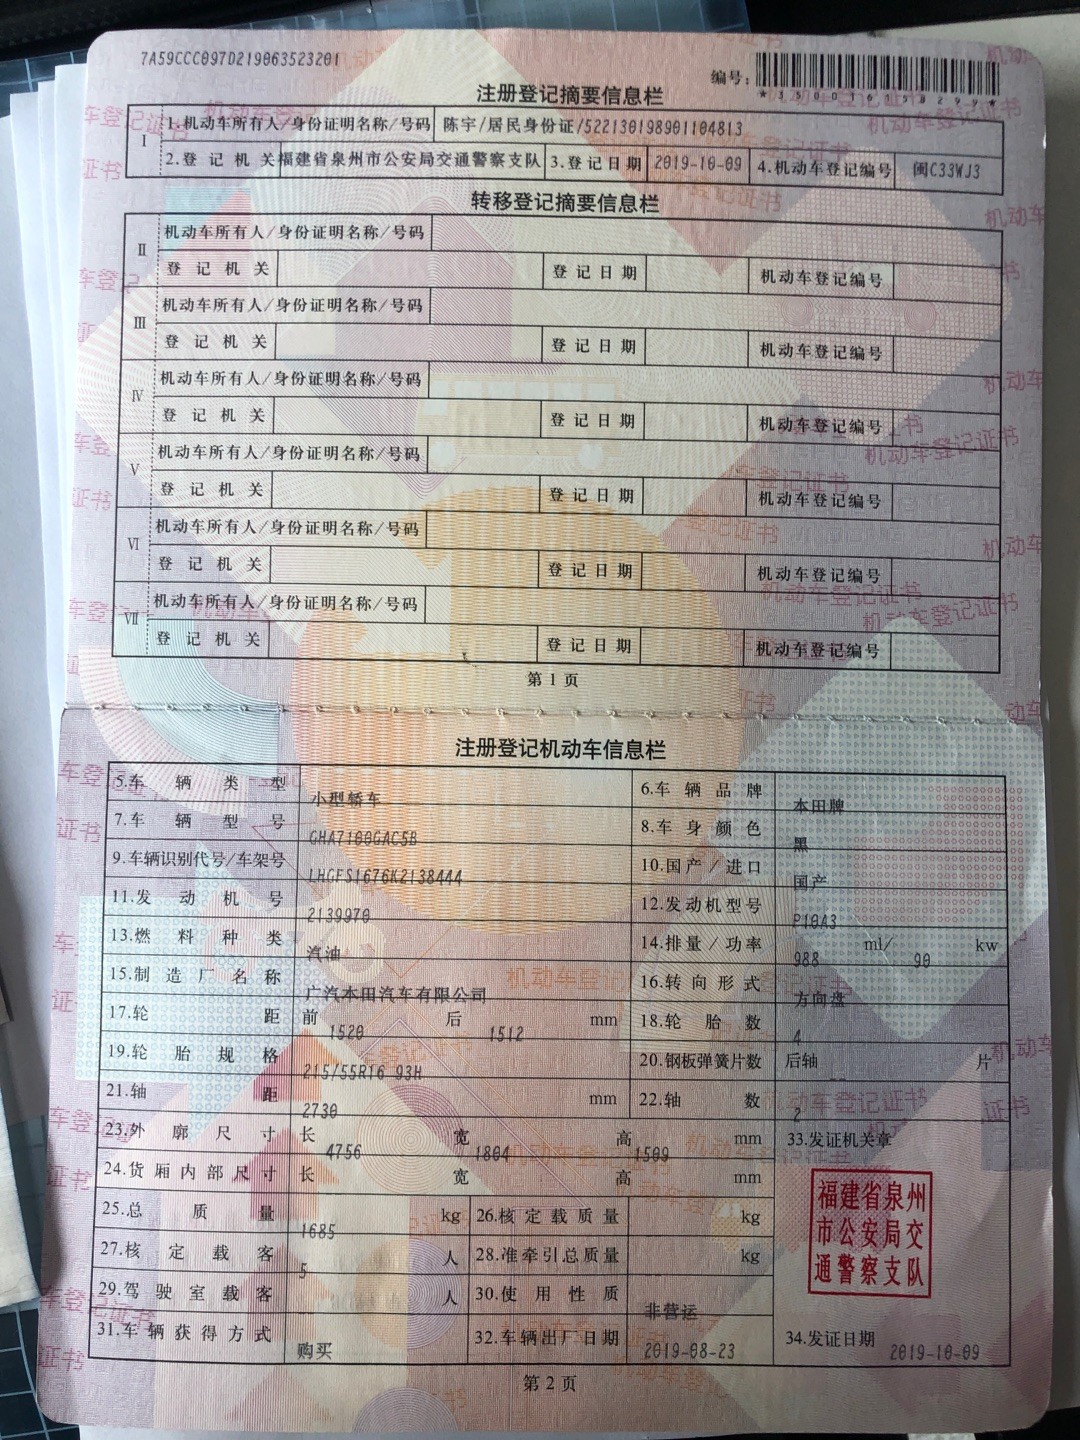 7A59CCC097D219063523201
编号:
注册登记摘要信息栏
I
1.机动车所有人/身份证明名称/号码 陈宇/居民身份证/522130198901104813
2.登记机关 福建省泉州市公安局交通警察支队 3.登记日期 2019-10-09 4.机动车登记编号 闽C33WJ3
转移登记摘要信息栏
II
机动车所有人/身份证明名称/号码
登记机关 登记日期 机动车登记编号
III
机动车所有人/身份证明名称/号码
登记机关 登记日期 机动车登记编号
IV
机动车所有人/身份证明名称/号码
登记机关 登记日期 机动车登记编号
V
机动车所有人/身份证明名称/号码
登记机关 登记日期 机动车登记编号
VI
机动车所有人/身份证明名称/号码
登记机关 登记日期 机动车登记编号
VII
机动车所有人/身份证明名称/号码
登记机关 登记日期 机动车登记编号
第1页
注册登记机动车信息栏
5.车辆类型 小型轿车 6.车辆品牌 本田牌
7.车辆型号 GHA7100GAC5B 8.车身颜色 黑
9.车辆识别代号/车架号 LHGFS1676K2138444 10.国产/进口 国产
11.发动机号 2139970 12.发动机型号 P10A3
13.燃料种类 汽油 14.排量/功率 988 ml/ 90 kw
15.制造厂名称 广汽本田汽车有限公司 16.转向形式 方向盘
17.轮距 前 1520 后 1512 mm 18.轮胎数 4
19.轮胎规格 215/55R16 93H 20.钢板弹簧片数 后轴 -- 片
21.轴距 2730 mm 22.轴数 2
23.外廓尺寸 长 4756 宽 1804 高 1509 mm 33.发证机关章
24.货厢内部尺寸 长 宽 高 mm
福建省泉州
市公安局交
通警察支队
25.总质量 1685 kg 26.核定载质量 kg
27.核定载客 5 人 28.准牵引总质量 kg
29.驾驶室载客 人 30.使用性质 非营运
31.车辆获得方式 购买 32.车辆出厂日期 2019-08-23 34.发证日期 2019-10-09
第2页